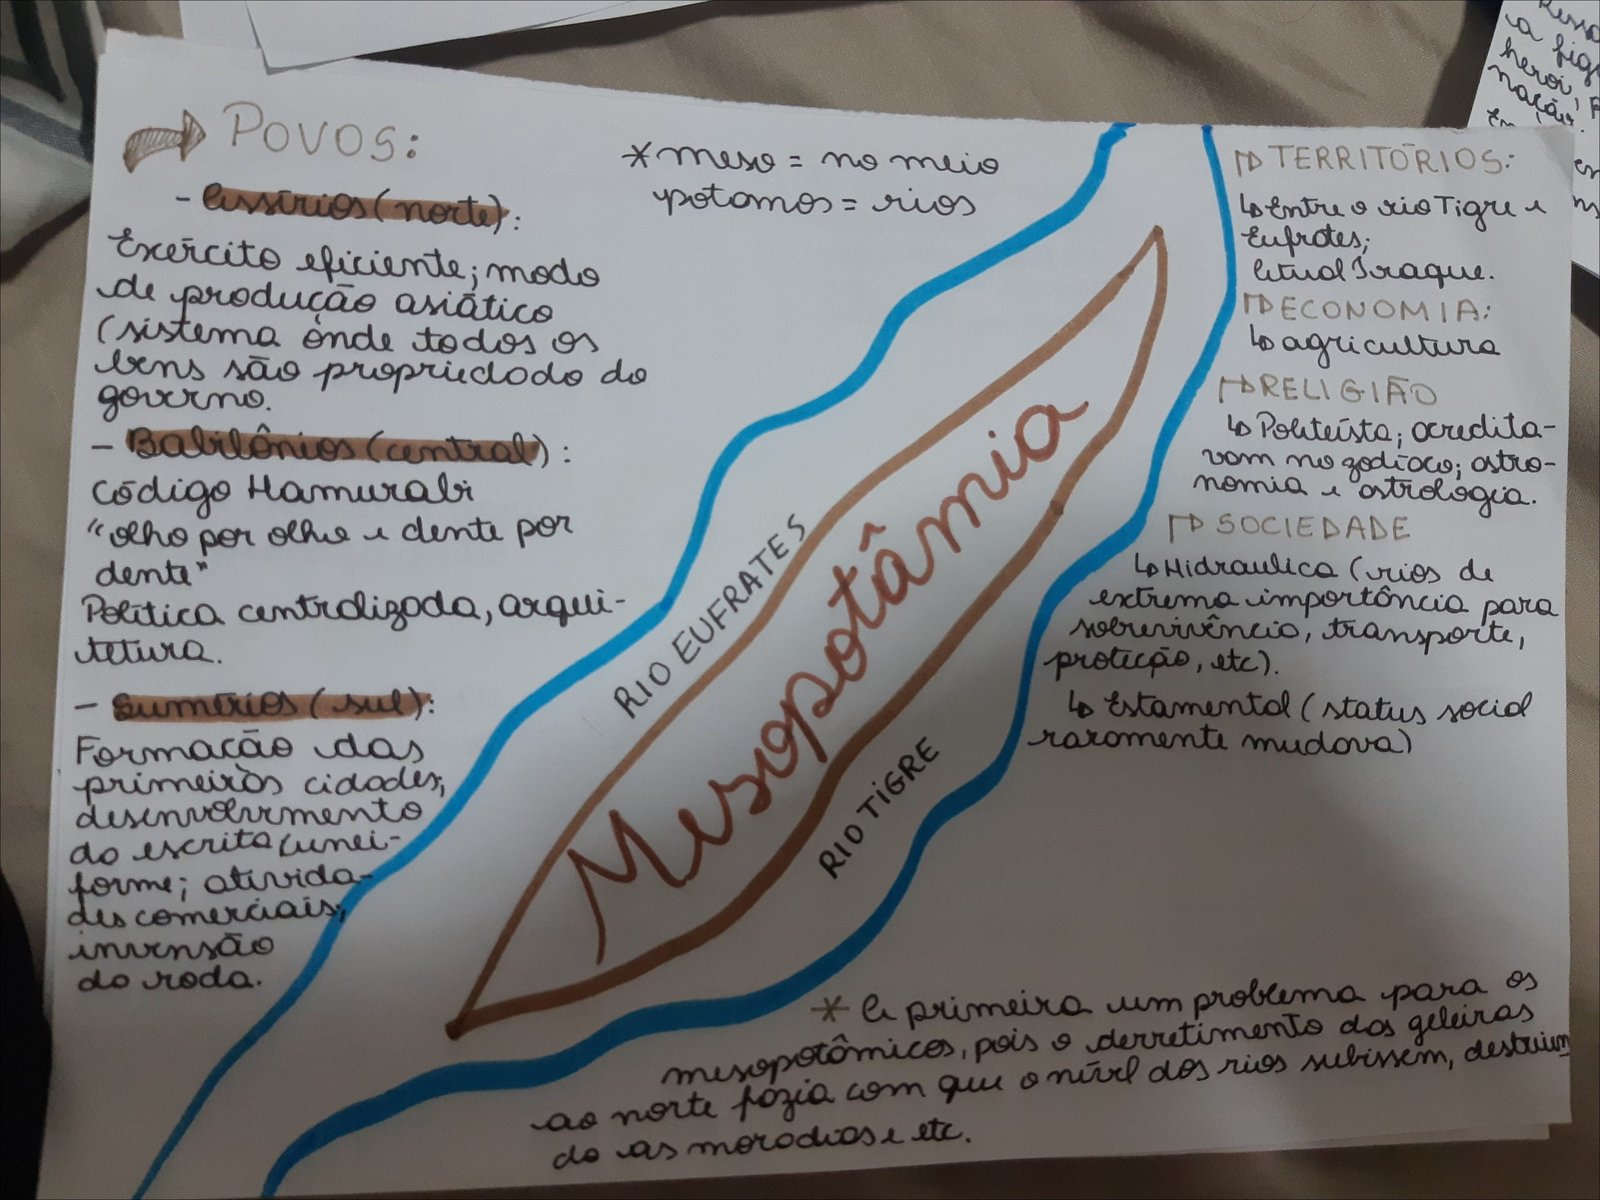 POVOS:
- Assírios (norte):
Exército eficiente; modo
de produção asiático
(sistema onde todos os
bens são propriedado do
governo.
- Babilônios (central):
Código Hamurabi
"olho por olho e dente por
dente"
Política centralizada, arqui-
tetura.
- Sumérios (sul):
Formação das
primeiros cidades;
desenvolvimento
da escrita cunei-
forme; ativida-
des comerciais;
invensão
da roda.
*meso = no meio
potamos = rios
RIO EUFRATES
Mesopotâmia
RIO TIGRE
TERRITÓRIOS:
Entre o rio Tigre e
Eufrates;
Atual Iraque.
ECONOMIA:
agricultura
RELIGIÃO
Politeísta; acredita-
vam no zodíaco; astro-
nomia e astrologia.
SOCIEDADE
Hidraulica (rios de
extrema importância para
sobrevivência, transporte,
proteção, etc).
Estamental (status social
raramente mudava)
* A primeira um problema para os
mesopotâmicos, pois o derretimento das geleiras
ao norte fazia com que o nível dos rios subissem, destruin
do as moradias e etc.
a fig
herói
nação